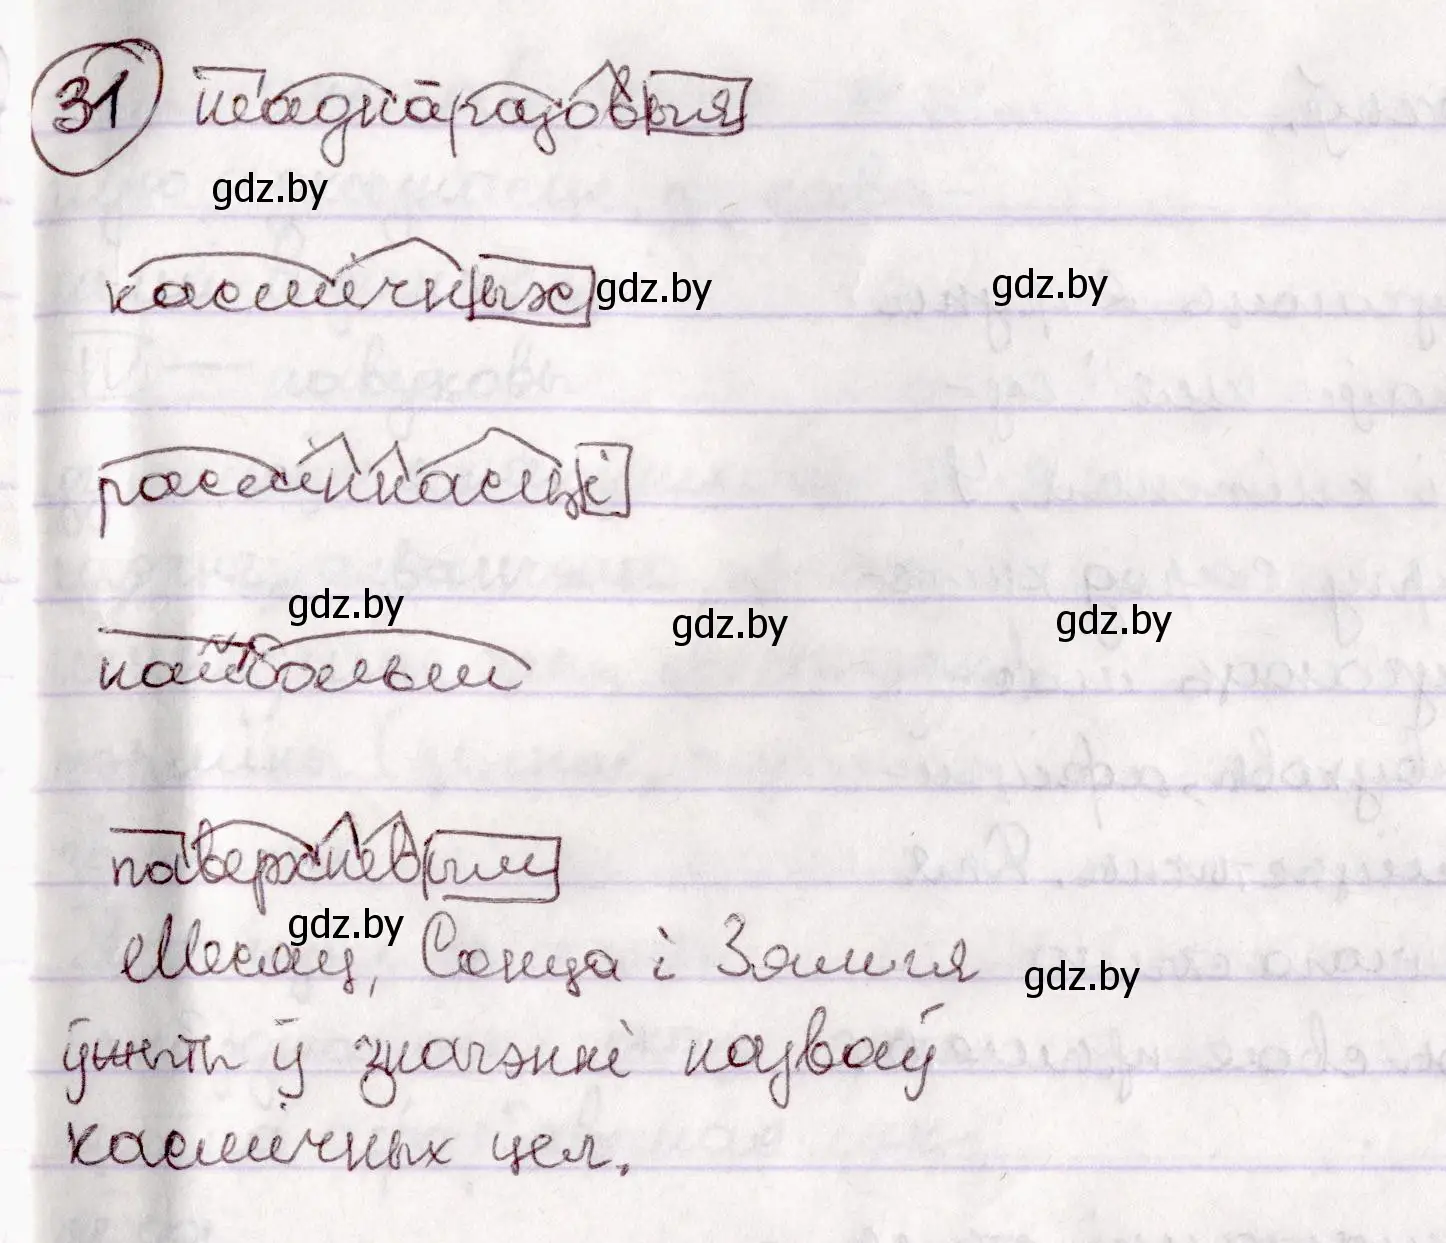 31 шаднаразовыя
gdz.by
касмічных gdz.by gdz.by
расліннасці
gdz.by gdz.by gdz.by
найбольш
паверхневым
gdz.by
Месяц, Сонца і Зямля gdz.by
ў значэнні назваў
касмічных цел.